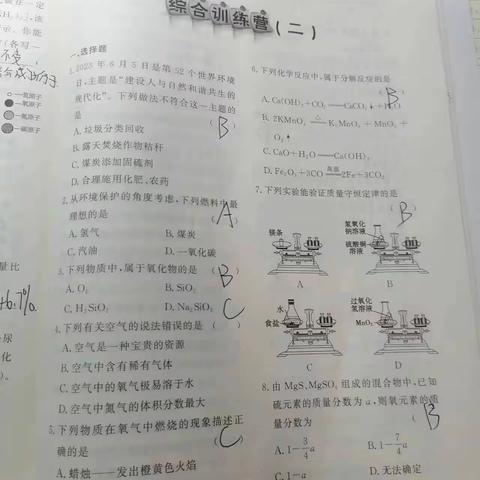 综合训练营(二)
一、选择题
1.2023年6月5日是第52个世界环境
日,主题是“建设人与自然和谐共生的
现代化”。下列做法不符合这一主题的
是 ( B )
A.垃圾分类回收
B.露天焚烧作物秸秆
C.煤炭添加固硫剂
D.合理施用化肥、农药
2.从环境保护的角度考虑,下列燃料中最
理想的是 ( A )
A.氢气 B.煤炭
C.汽油 D.一氧化碳
3.下列物质中,属于氧化物的是 ( B )
A.O₂ B.SiO₂
C.H₂SiO₃ D.Na₂SiO₃
4.下列有关空气的说法错误的是 ( C )
A.空气是一种宝贵的资源
B.空气中含有稀有气体
C.空气中的氧气极易溶于水
D.空气中氮气的体积分数最大
5.下列物质在氧气中燃烧的现象描述正
确的是 ( C )
A.蜡烛——发出橙黄色火焰
6.下列化学反应中,属于分解反应的是
( B )
A.Ca(OH)₂+CO₂══CaCO₃↓+H₂O
B.2KMnO₄ △══ K₂MnO₄ + MnO₂ +
O₂↑
C.CaO+H₂O══Ca(OH)₂
D.Fe₂O₃+3CO 高温══ 2Fe+3CO₂
7.下列实验能验证质量守恒定律的是
( B )
镁条
A
氢氧化
钠溶液
硫酸铜
溶液
B
水
食盐
C
过氧化
氢溶液
MnO₂
D
8.由MgS、MgSO₄组成的混合物中,已知
硫元素的质量分数为a,则氧元素的质
量分数为 ( B )
A.1-3/4 a B.1-7/4 a
C.1-a D.无法确定